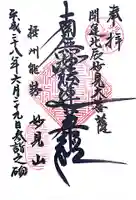 奉拝
開運北辰妙見大菩薩
南無妙法蓮華経
摂州能勢 妙見山
平成二八年六月二十九日参詣之砌